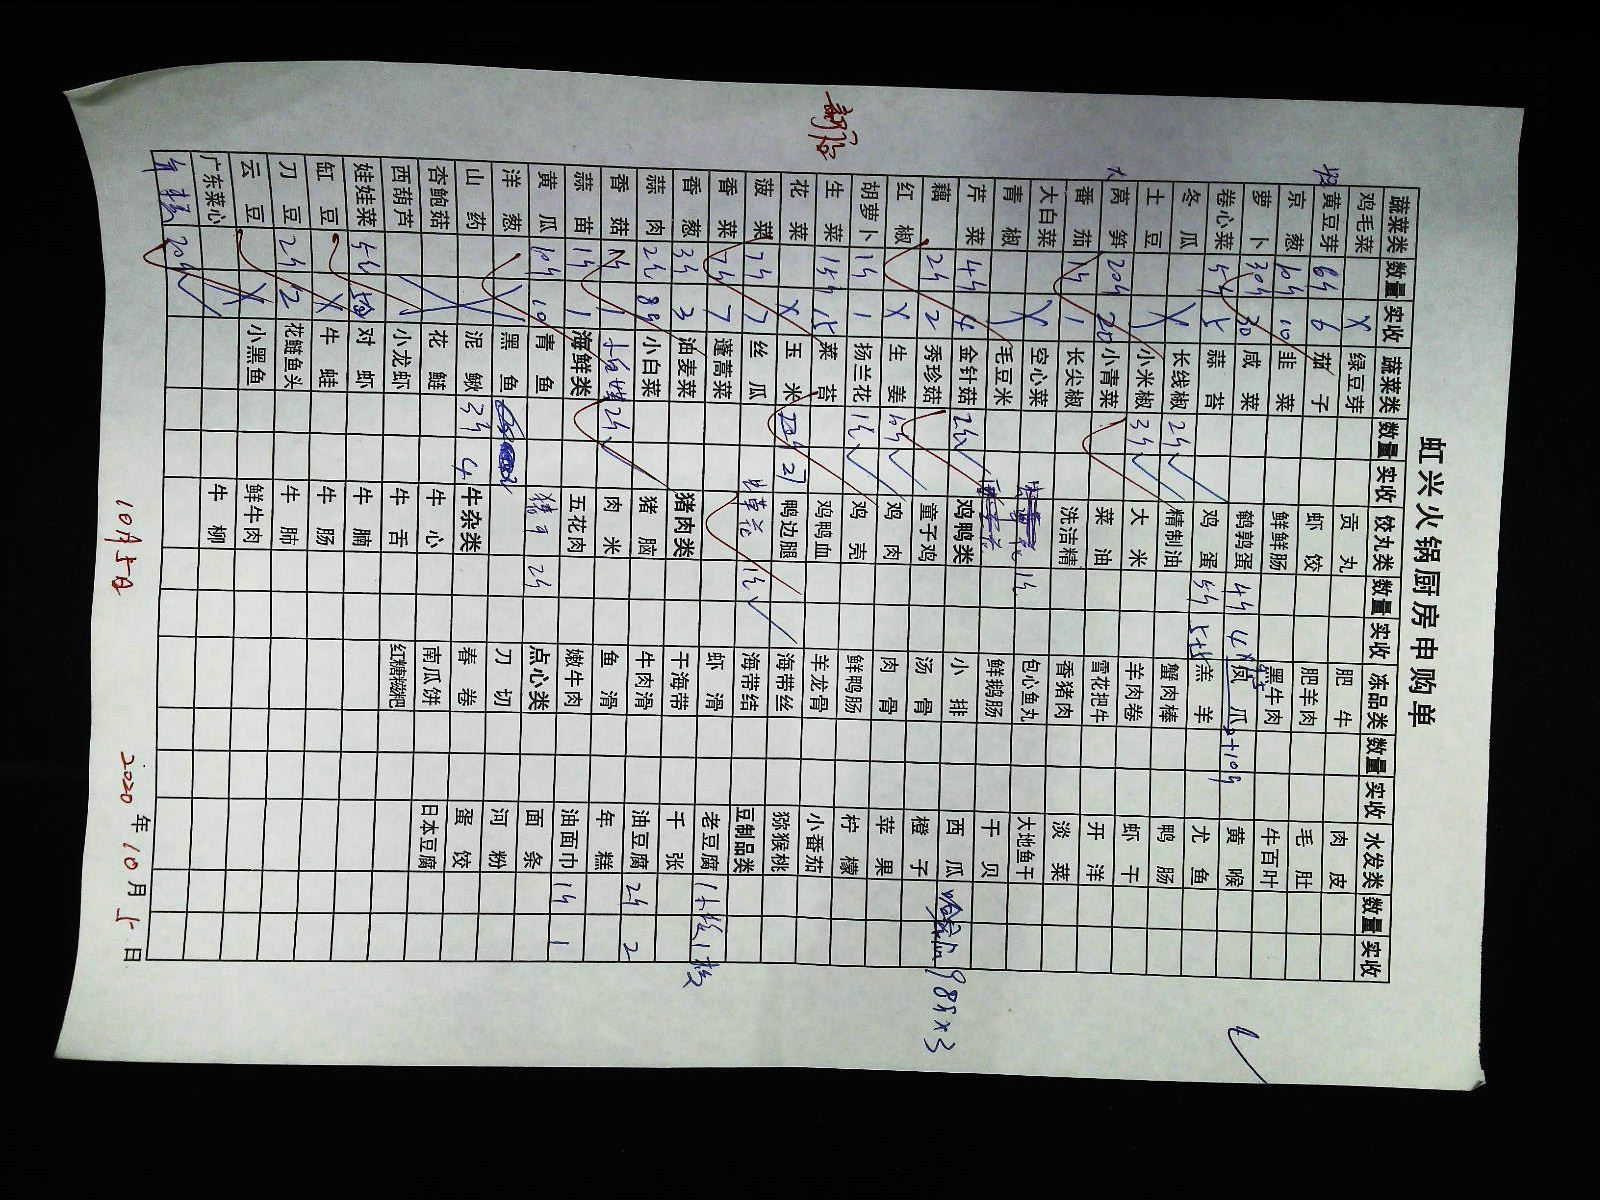 虹兴火锅厨房申购单
蔬菜类 数量 实收 蔬菜类 数量 实收 饺丸类 数量 实收 冻品类 数量 实收 水发类 数量 实收
鸡毛菜 X 绿豆芽 贡丸 肥牛 肉皮
黄豆芽 6斤 6 茄子 虾饺 肥羊肉 毛肚
京葱 10斤 10 韭菜 鲜鲜肠 黑牛肉 牛百叶
萝卜 30斤 30 咸菜 鹌鹑蛋 4斤 4 凤爪 2+10斤 黄喉
卷心菜 5斤 5 蒜苔 鸡蛋 5斤 羔羊 尤鱼
冬瓜 X 长线椒 2斤 精制油 蟹肉棒 鸭肠
土豆 小米椒 3斤 大米 羊肉卷 虾干
大 莴笋 20斤 20 小青菜 菜油 雪花把牛 开洋
番茄 1斤 1 长尖椒 洗洁精 香猪肉 淡菜
大白菜 X 空心菜 1斤 包心鱼丸 大地鱼干
青椒 毛豆米 鲜鹅肠 干贝
芹菜 4斤 4 金针菇 2斤 鸡鸭类 小排 西瓜 98斤×3
藕 2斤 2 秀珍菇 童子鸡 汤骨 橙子
红椒 X 生姜 10斤 鸡肉 肉骨 苹果
胡萝卜 1斤 1 扬兰花 1斤 鸡壳 鲜鸭肠 柠檬
生菜 15斤 15 菜苔 鸡鸭血 羊龙骨 小番茄
花菜 X 玉米 27 鸭边腿 海带丝 猕猴桃
菠菜 7斤 7 丝瓜 1斤 海带结 豆制品类
香菜 7斤 7 蓬蒿菜 虾滑 老豆腐 1 1板
香葱 3斤 3 油麦菜 猪肉类 干海带 千张
蒜肉 2斤 8斤 小白菜 猪脑 牛肉滑 油豆腐 2斤 2
香菇 1斤 1 2斤 肉米 鱼滑 年糕
蒜苗 1斤 1 海鲜类 五花肉 嫩牛肉 油面巾 1斤 1
黄瓜 10斤 10 青鱼 2斤 点心类 面条
洋葱 X 黑鱼 刀切 河粉
山药 泥鳅 3斤 4 牛杂类 春卷 蛋饺
杏鲍菇 花鲢 牛心 南瓜饼 日本豆腐
西葫芦 小龙虾 牛舌 红糖糍粑
娃娃菜 对虾 牛腩
缸豆 X 牛蛙 牛肠
刀豆 2斤 2 花鲢鱼头 牛肺
云豆 X 小黑鱼 鲜牛肉
广东菜心 牛柳
20斤
10月5日
2020年10月5日